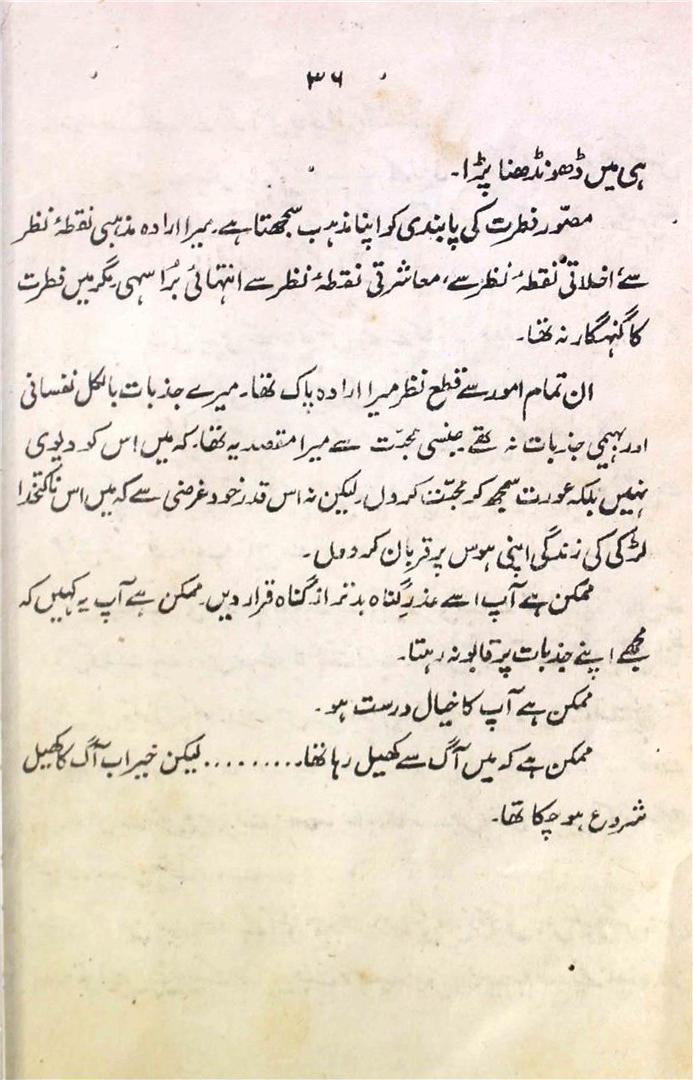 ۳۶
ہی میں ڈھونڈھنا پڑا۔
مصوّر فطرت کی پابندی کو اپنا مذہب سمجھتا ہے۔ میرا ارادہ مذہبی نقطۂ نظر
سے، اخلاقی نقطۂ نظر سے، معاشرتی نقطۂ نظر سے انتہائی بُرا سہی۔ مگر میں فطرت
کا گنہگار نہ تھا۔
ان تمام امور سے قطع نظر میرا ارادہ پاک تھا۔ میرے جذبات بالکل نفسانی
اور بہیمی جذبات نہ تھے۔ جنسی محبّت سے میرا مقصد یہ تھا۔ کہ میں اس کو دیوی
نہیں بلکہ عورت سمجھ کر محبّت کروں۔ لیکن نہ اس قدر خود غرضی سے کہ میں اس ناکتخدا
لڑکی کی زندگی اپنی ہوس پر قربان کر دوں۔
ممکن ہے آپ اسے عذرِ گناہ بدتر از گناہ قرار دیں۔ ممکن ہے آپ یہ کہیں کہ
مجھے اپنے جذبات پر قابو نہ رہتا۔
ممکن ہے آپ کا خیال درست ہو۔
ممکن ہے کہ میں آگ سے کھیل رہا تھا۔......... لیکن خیر اب آگ کا کھیل
شروع ہو چکا تھا۔